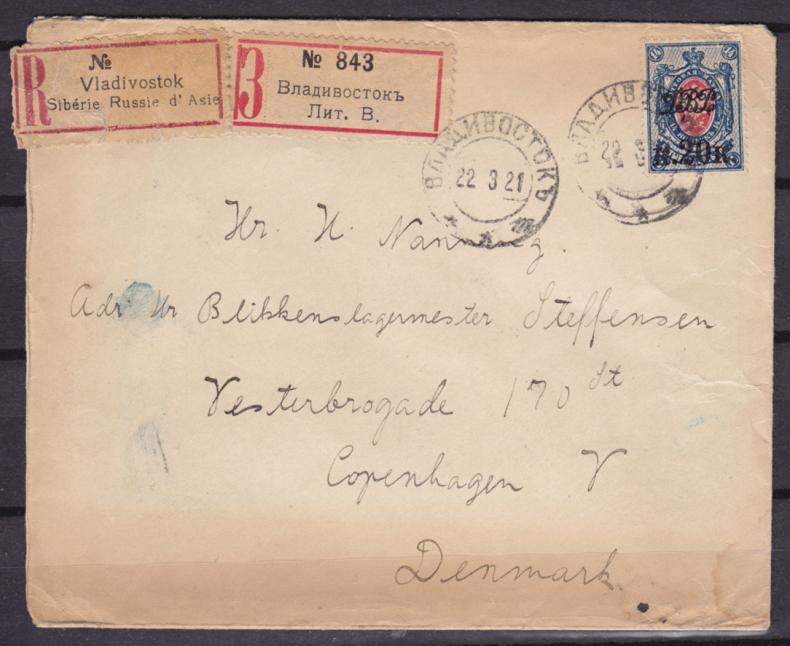 R
№
Vladivostok
Sibérie Russie d' Asie
З
№ 843
Владивостокъ
Лит. В.
ВЛАДИВОСТОКЪ
22 3 21
ВЛАДИВ
22
20к.
Hr. N. Nanning.
Adr Hr Blikkenslagermester Steffensen
Vesterbrogade 170 St
Copenhagen V
Denmark.